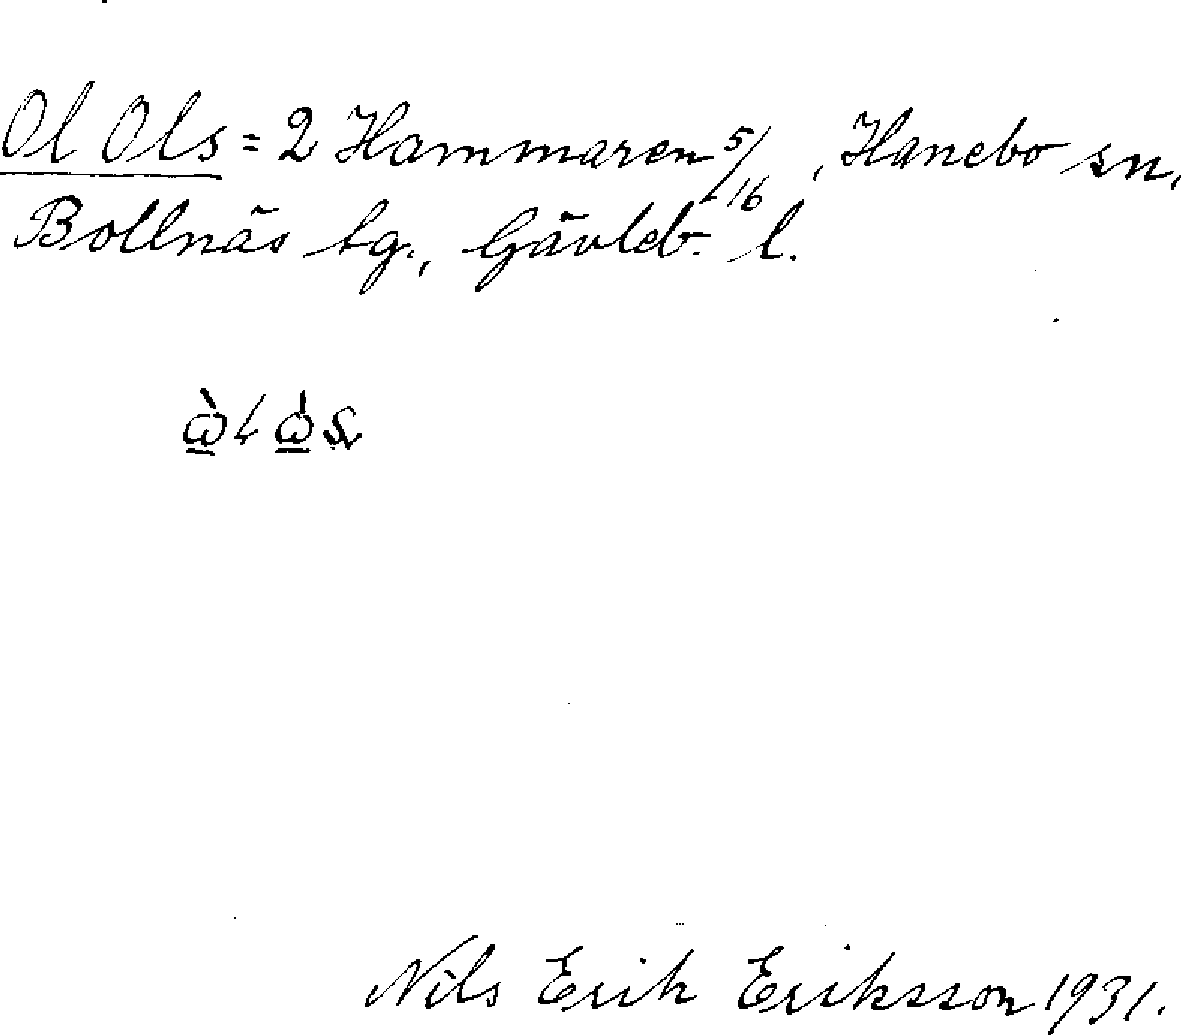 Ol Ols = 2 Hammaren 5/16, Hanebo sn,
Bollnäs tg., Gävleb. l.
Nils Erik Eriksson 1931.